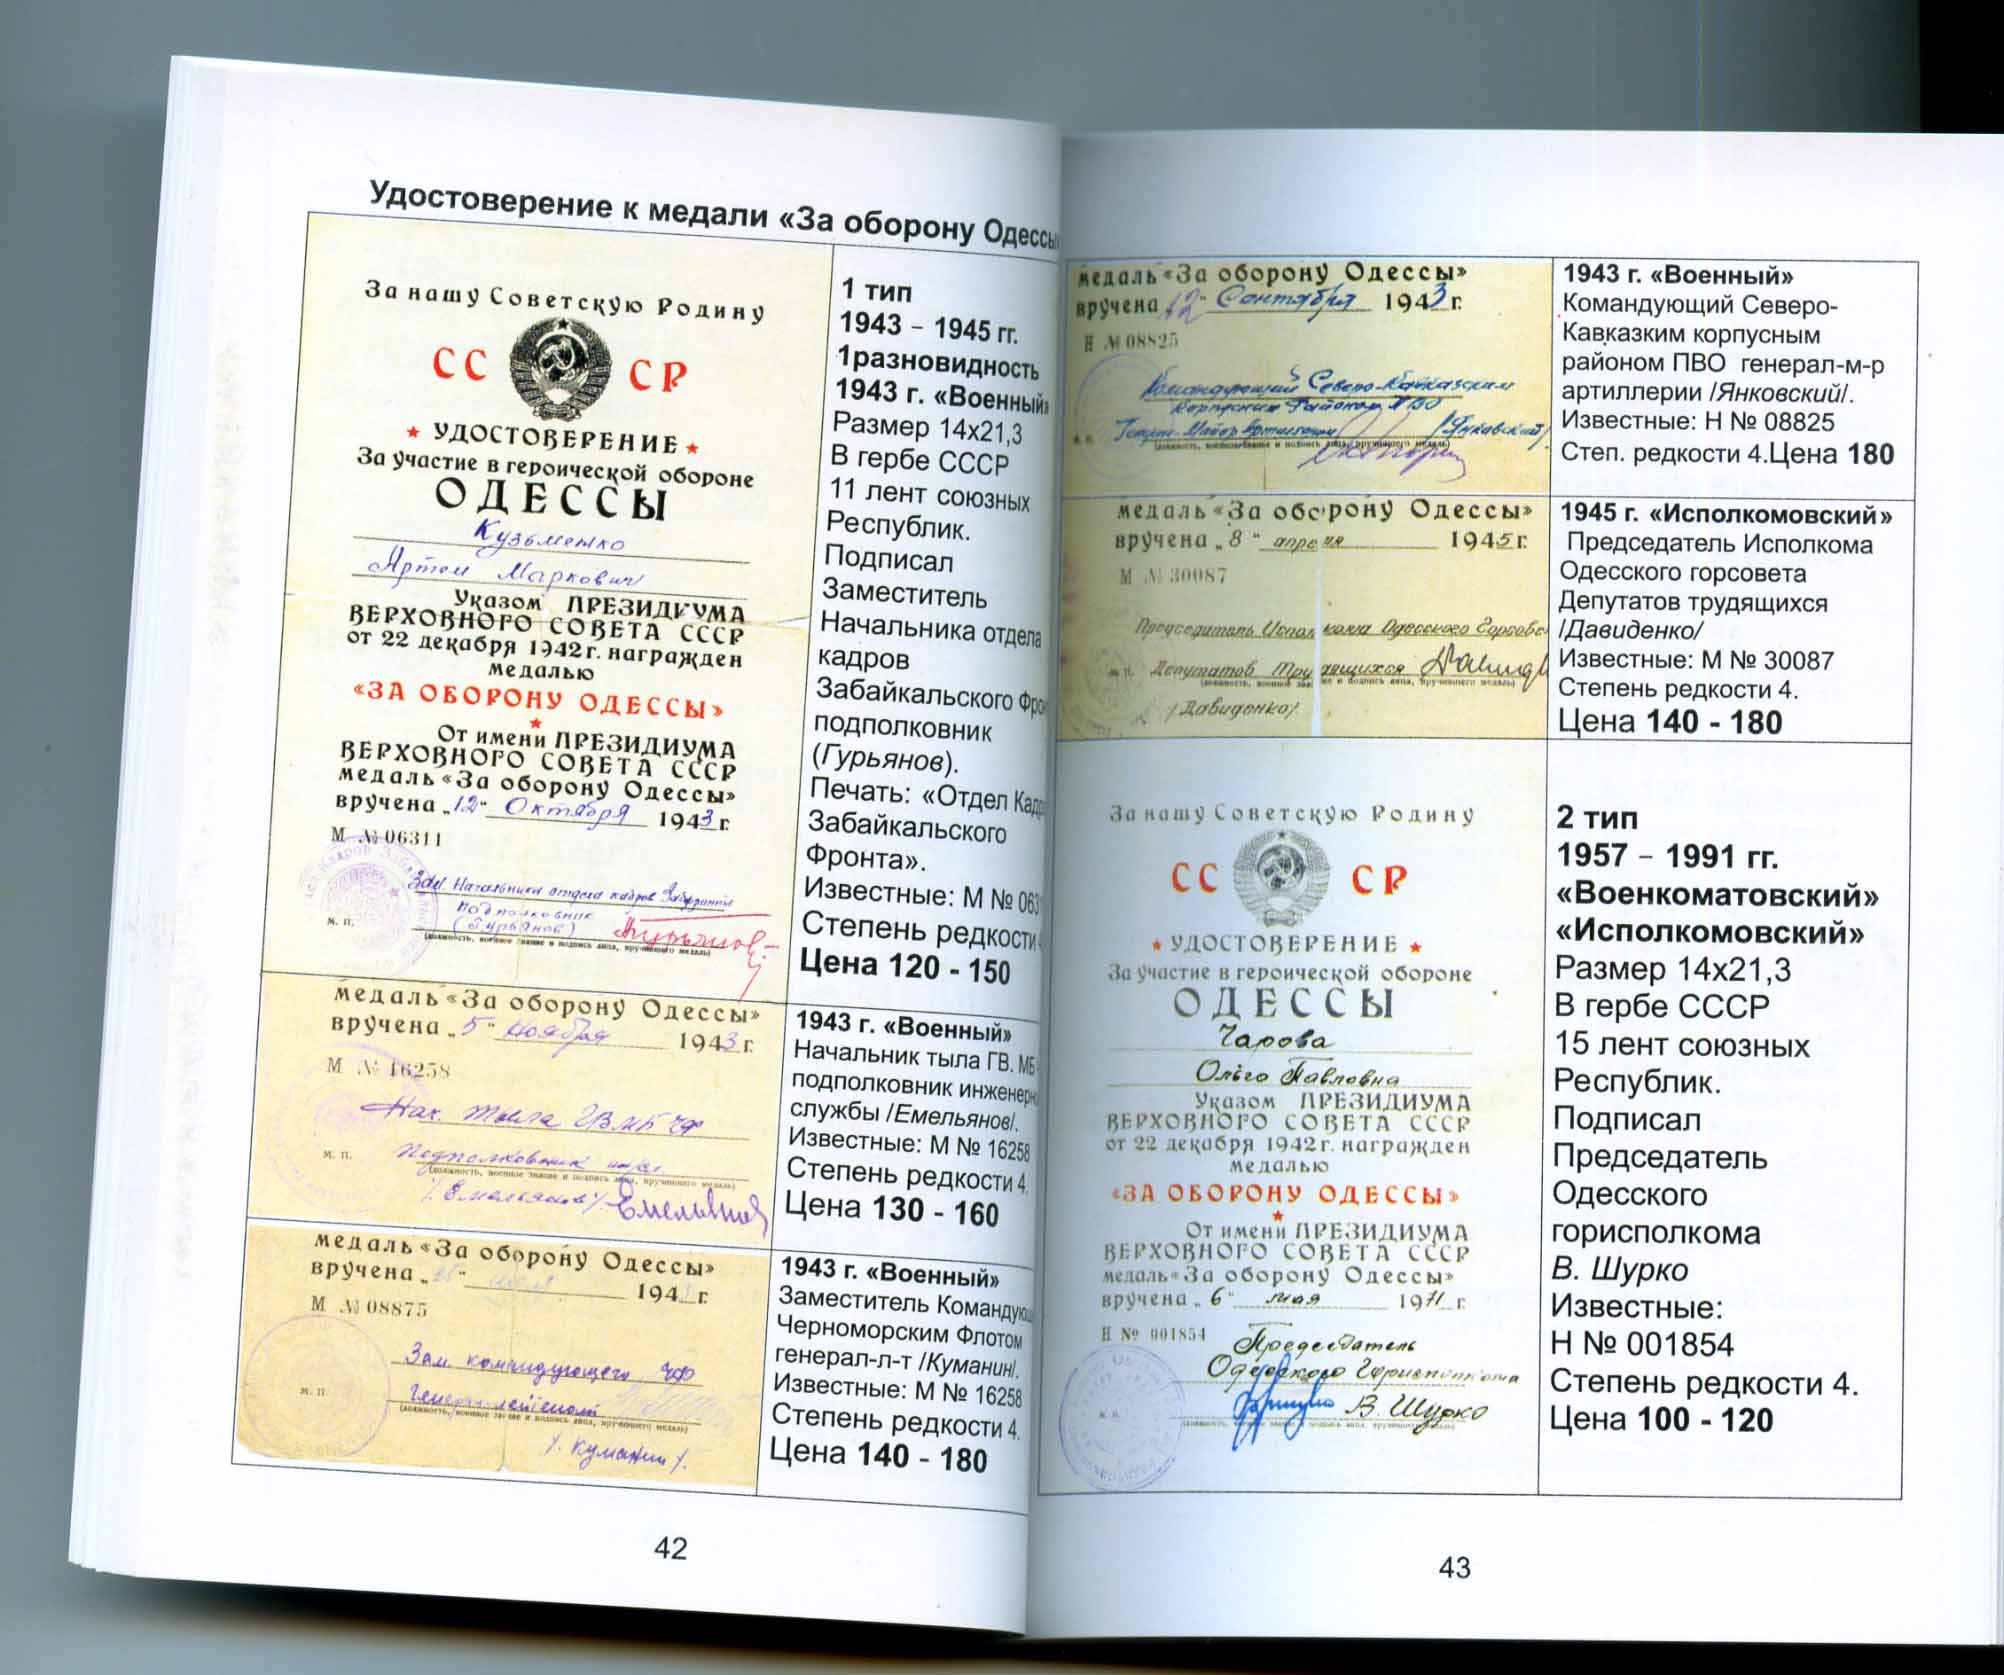 Удостоверение к медали «За оборону Одессы
За нашу Советскую Родину
СС СР
УДОСТОВЕРЕНИЕ
За участие в героической обороне
ОДЕССЫ
Кузьменко
Артем Маркович
Указом ПРЕЗИДИУМА
ВЕРХОВНОГО СОВЕТА СССР
от 22 декабря 1942 г. награжден
медалью
«ЗА ОБОРОНУ ОДЕССЫ»
От имени ПРЕЗИДИУМА
ВЕРХОВНОГО СОВЕТА СССР
медаль «За оборону Одессы»
вручена „12" Октября 1943 г.
М № 06311
Зам. Начальника отдела кадров Забфронта
подполковник
(Гурьянов)
м. п.
(должность, военное звание и подпись лица, вручившего медаль)
1 тип
1943 – 1945 гг.
1разновидность
1943 г. «Военный»
Размер 14х21,3
В гербе СССР
11 лент союзных
Республик.
Подписал
Заместитель
Начальника отдела
кадров
Забайкальского
подполковник
(Гурьянов).
Печать: «Отдел
Забайкальского
Фронта».
Известные: М №
Степень редкости
Цена 120 - 150
медаль «За оборону Одессы»
вручена „5" ноября 1943 г.
М № 16258
Нач. тыла ГВМБ ЧФ
м. п.
Подполковник
(должность, военное звание и подпись лица, вручившего медаль)
/Емельянов/ Емельянов
1943 г. «Военный»
Начальник тыла ГВ. МБ
подполковник
службы /Емельянов/.
Известные: М № 16258
Степень редкости 4.
Цена 130 - 160
медаль «За оборону Одессы»
вручена 194 г.
М № 08875
Зам. командующего ЧФ
м. п.
Генерал-лейтенант
(должность, военное звание и подпись лица, вручившего медаль)
/. Куманин /.
1943 г. «Военный»
Заместитель
Черноморским Флотом
генерал-л-т /Куманин/.
Известные: М № 16258
Степень редкости 4.
Цена 140 - 180
42
медаль «За оборону Одессы»
вручена „12" Сентября 1943 г.
Н № 08825
Командующий Северо-Кавказским
Корпусным Районом ПВО
Генерал-Майор Артиллерии /Янковский/
(должность, военное звание и подпись лица, вручившего медаль)
1943 г. «Военный»
Командующий Северо-
Кавказким корпусным
районом ПВО генерал-м-р
артиллерии /Янковский/.
Известные: Н № 08825
Степ. редкости 4.Цена 180
медаль «За оборону Одессы»
вручена „8" апреля 1945 г.
М № 30087
Председатель Исполкома Одесского
м. п.
Депутатов Трудящихся
(должность, военное звание и подпись лица, вручившего медаль)
/Давиденко/.
1945 г. «Исполкомовский»
Председатель Исполкома
Одесского горсовета
Депутатов трудящихся
/Давиденко/
Известные: М № 30087
Степень редкости 4.
Цена 140 - 180
За нашу Советскую Родину
СС СР
УДОСТОВЕРЕНИЕ
За участие в героической обороне
ОДЕССЫ
Чарова
Ольга Павловна
Указом ПРЕЗИДИУМА
ВЕРХОВНОГО СОВЕТА СССР
от 22 декабря 1942 г. награжден
медалью
«ЗА ОБОРОНУ ОДЕССЫ»
От имени ПРЕЗИДИУМА
ВЕРХОВНОГО СОВЕТА СССР
медаль «За оборону Одессы»
вручена „6" мая 1971 г.
Н № 001854
Председатель
Одесского Горисполкома
В. Шурко
м. п.
2 тип
1957 – 1991 гг.
«Военкоматовский»
«Исполкомовский»
Размер 14х21,3
В гербе СССР
15 лент союзных
Республик.
Подписал
Председатель
Одесского
горисполкома
В. Шурко
Известные:
Н № 001854
Степень редкости 4.
Цена 100 - 120
43